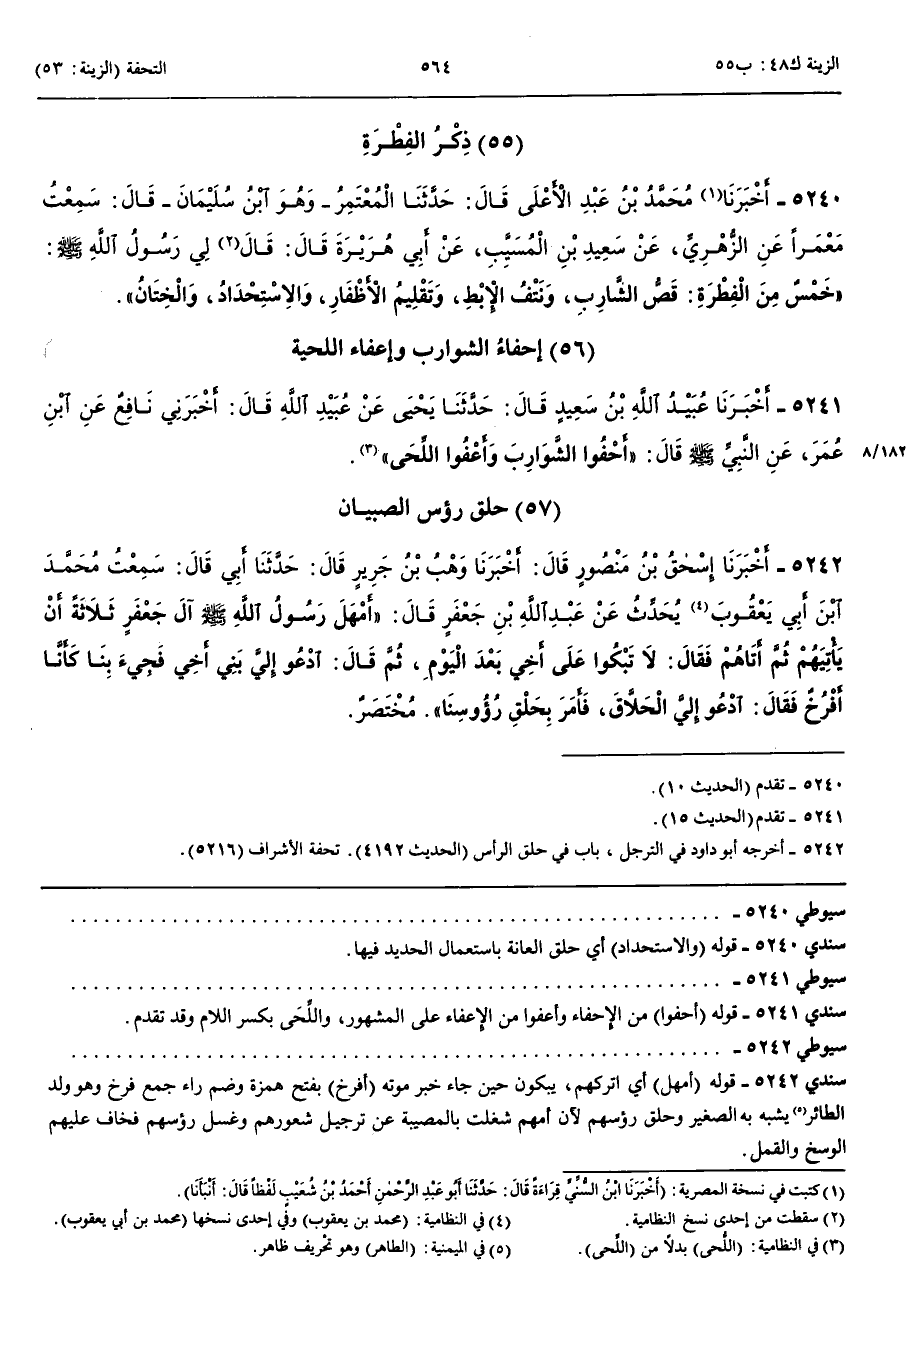 الزينة ك٤٨: ب٥٥
٥٦٤
التحفة (الزينة: ٥٣)
(٥٥) ذِكْرُ الفِطْرَةِ
٥٢٤٠ ـ أَخْبَرَنَا(١) مُحَمَّدُ بْنُ عَبْدِ الْأَعْلَى قَالَ: حَدَّثَنَا الْمُعْتَمِرُ ـ وَهُوَ ٱبْنُ سُلَيْمَانَ ـ قَالَ: سَمِعْتُ
مَعْمَراً عَنِ الزُّهْرِيِّ، عَنْ سَعِيدِ بْنِ الْمُسَيَّبِ، عَنْ أَبِي هُرَيْرَةَ قَالَ: قَالَ(٢) لِي رَسُولُ ٱللَّهِ ﷺ:
«خَمْسٌ مِنَ الْفِطْرَةِ: قَصُّ الشَّارِبِ، وَنَتْفُ الْإِبْطِ، وَتَقْلِيمُ الْأَظْفَارِ، وَالِاسْتِحْدَادُ، وَالْخِتَانُ».
(٥٦) إحفاءُ الشوارب وإعفاء اللحية
٥٢٤١ ـ أَخْبَرَنَا عُبَيْدُ ٱللَّهِ بْنُ سَعِيدٍ قَالَ: حَدَّثَنَا يَحْيَى عَنْ عُبَيْدِ ٱللَّهِ قَالَ: أَخْبَرَنِي نَافِعٌ عَنِ ٱبْنِ
عُمَرَ، عَنِ النَّبِيِّ ﷺ قَالَ: «أَحْفُوا الشَّوَارِبَ وَأَعْفُوا اللِّحَى»(٣).
٨/١٨٢
(٥٧) حلق رؤس الصبيان
٥٢٤٢ ـ أَخْبَرَنَا إِسْحٰقُ بْنُ مَنْصُورٍ قَالَ: أَخْبَرَنَا وَهْبُ بْنُ جَرِيرٍ قَالَ: حَدَّثَنَا أَبِي قَالَ: سَمِعْتُ مُحَمَّدَ
ٱبْنَ أَبِي يَعْقُوبَ(٤) يُحَدِّثُ عَنْ عَبْدِٱللَّهِ بْنِ جَعْفَرٍ قَالَ: «أَمْهَلَ رَسُولُ ٱللَّهِ ﷺ آلَ جَعْفَرٍ ثَلَاثَةً أَنْ
يَأْتِيَهُمْ ثُمَّ أَتَاهُمْ فَقَالَ: لَا تَبْكُوا عَلَى أَخِي بَعْدَ الْيَوْمِ، ثُمَّ قَالَ: ٱدْعُو إِلَيَّ بَنِي أَخِي فَجِيءَ بِنَا كَأَنَّا
أَفْرُخٌ فَقَالَ: ٱدْعُو إِلَيَّ الْحَلَّاقَ، فَأَمَرَ بِحَلْقِ رُؤُوسِنَا». مُخْتَصَرٌ.
٥٢٤٠ ـ تقدم (الحديث ١٠).
٥٢٤١ ـ تقدم(الحديث ١٥).
٥٢٤٢ ـ أخرجه أبو داود في الترجل، باب في حلق الرأس (الحديث ٤١٩٢). تحفة الأشراف (٥٢١٦).
سيوطي ٥٢٤٠ ـ ..........
سندي ٥٢٤٠ ـ قوله (والاستحداد) أي حلق العانة باستعمال الحديد فيها.
سيوطي ٥٢٤١ ـ ..........
سندي ٥٢٤١ ـ قوله (أحفوا) من الإحفاء وأعفوا من الإعفاء على المشهور، واللِّحَى بكسر اللام وقد تقدم.
سيوطي ٥٢٤٢ ـ ..........
سندي ٥٢٤٢ ـ قوله (أمهل) أي اتركهم، يبكون حين جاء خبر موته (أفرخ) بفتح همزة وضم راء جمع فرخ وهو ولد
الطائر(٥) يشبه به الصغير وحلق رؤسهم لأن أمهم شغلت بالمصيبة عن ترجيل شعورهم وغسل رؤسهم فخاف عليهم
الوسخ والقمل.
(١) كتبت في نسخة المصرية: (أَخْبَرَنَا ابْنُ السُّنِّيِّ قِرَاءَةً قَالَ: حَدَّثَنَا أَبُو عَبْدِ الرَّحْمٰنِ أَحْمَدُ بْنُ شُعَيْبٍ لَفْظاً قَالَ: أَنْبَأَنَا).
(٢) سقطت من إحدى نسخ النظامية.
(٤) في النظامية: (محمد بن يعقوب) وفي إحدى نسخها (محمد بن أبي يعقوب).
(٣) في النظامية: (اللُّحى) بدلاً من (اللِّحى).
(٥) في الميمنية: (الطاهر) وهو تحريف ظاهر.